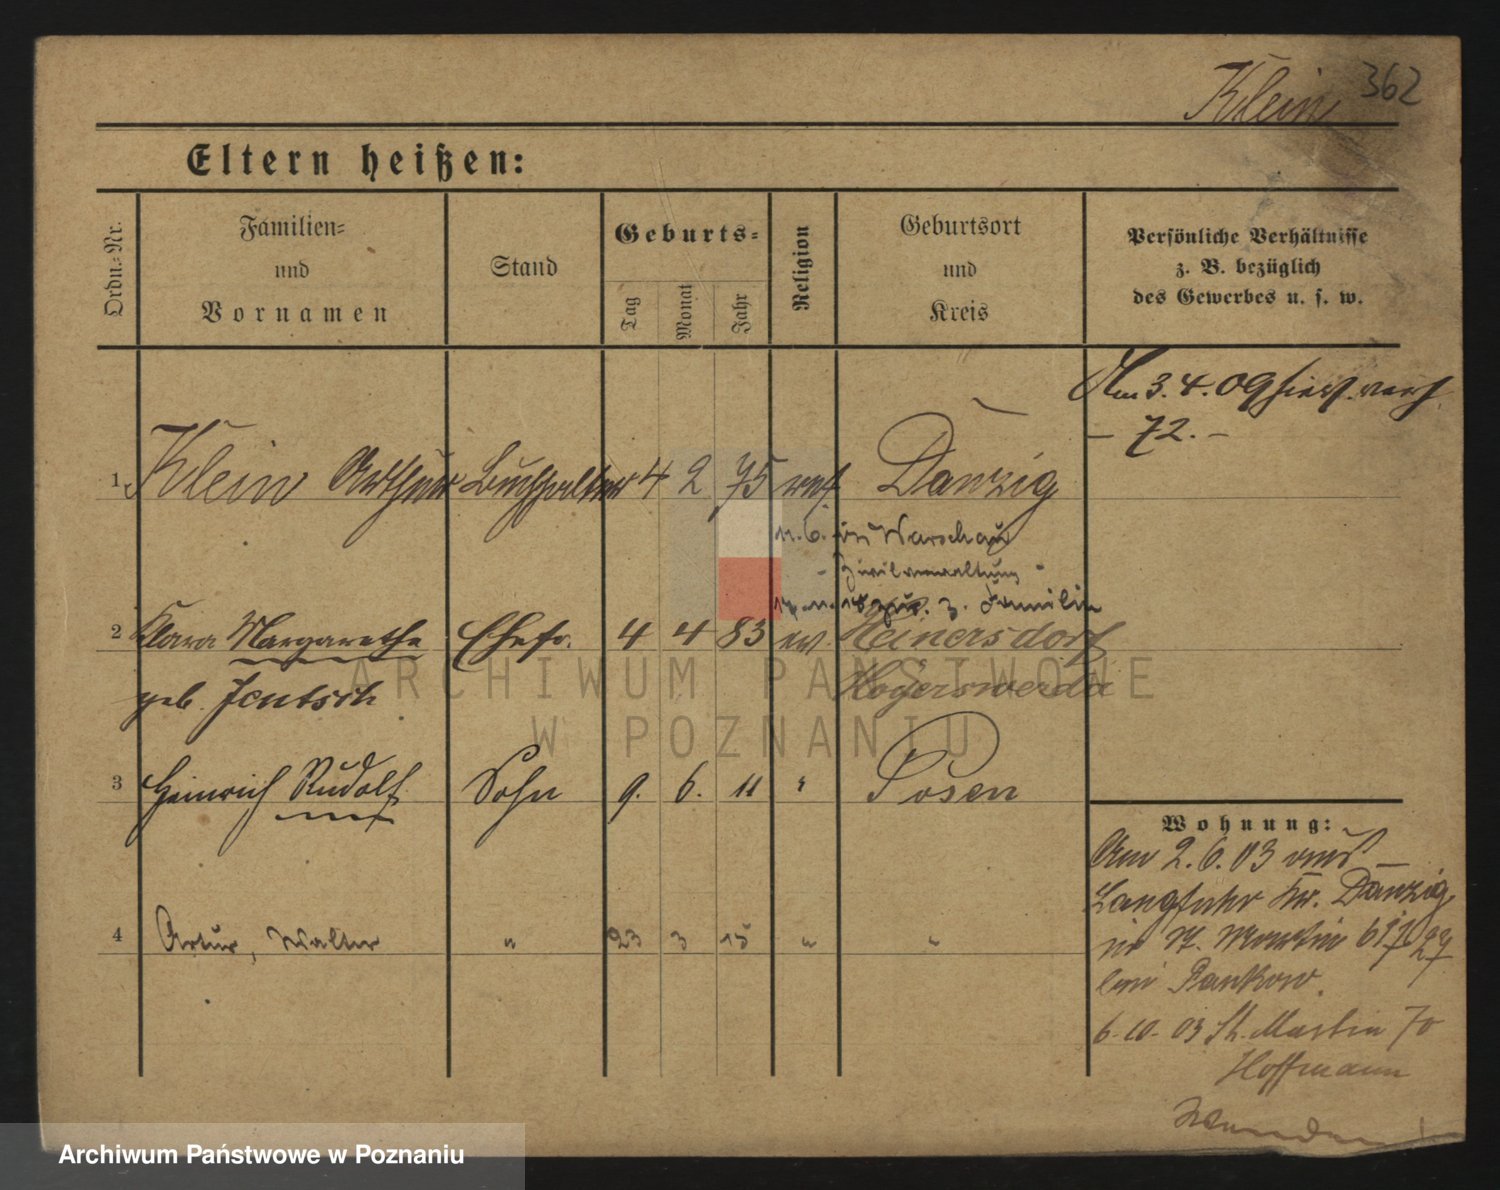 Klein 362
Eltern heißen:
Ordn.-Nr.
Familien-
und
Vornamen
Stand
Geburts-
Tag
Monat
Jahr
Religion
Geburtsort
und
Kreis
Persönliche Verhältnisse
z. B. bezüglich
des Gewerbes u. s. w.
Am 3.4.09 hier verh.
– 72. –
1 Klein Arthur Buchhalter 4 2 75 ref Danzig
n. 6. in Warschau
- Zivilverwaltung -
zur. z. Familie
2 Klara Margarethe Ehefr. 4 4 83 ev. Heinersdorf
geb. Jentsch Hoyerswerda
3 Heinrich Rudolf Sohn 9. 6. 11 " Posen
4 Artur, Walter " 23 3 15 " "
Wohnung:
Am 2.6.03 aus
Langfuhr Kr. Danzig
in St. Martin
bei Pankow.
6.10.03 St. Martin 70
Hoffmann
ARCHIWUM PAŃSTWOWE
W POZNANIU
Archiwum Państwowe w Poznaniu